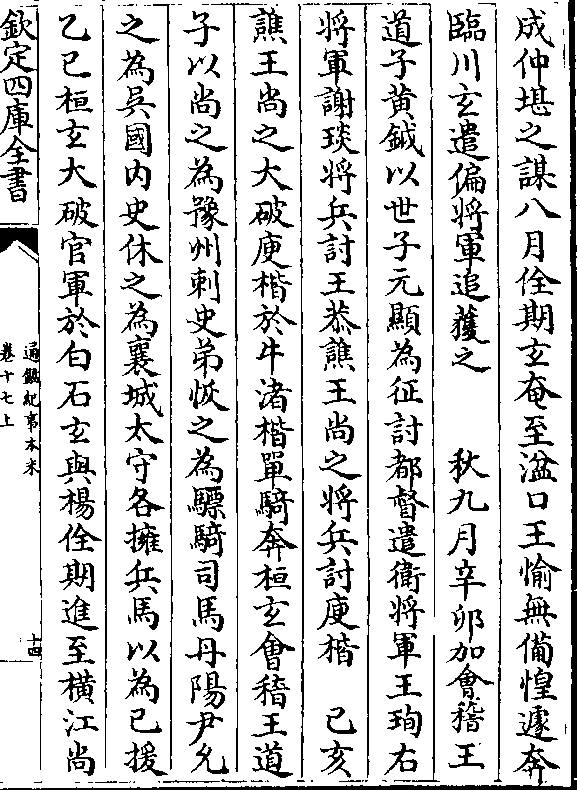 成仲堪之謀八月佺期玄奄至湓口王愉無備惶遽奔
臨川玄遣偏將軍追獲之　　秋九月辛卯加會稽王
道子黃鉞以世子元顯為征討都督遣衛將軍王珣右
將軍謝琰將兵討王恭譙王尚之將兵討庾楷　己亥
譙王尚之大破庾楷於牛渚楷單騎奔桓玄會稽王道
子以尚之為豫州刺史弟恢之為驃騎司馬丹陽尹允
之為吳國內史休之為襄城太守各擁兵馬以為己援
乙巳桓玄大破官軍於白石玄與楊佺期進至橫江尚
欽定四庫全書
通鑑紀事本末
卷十七上
十四